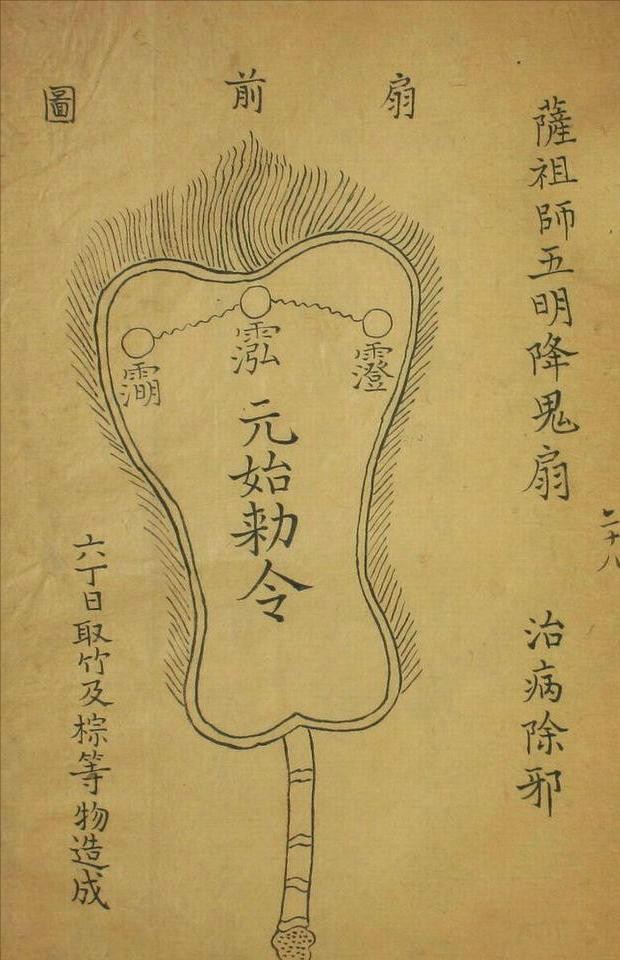 薩祖師五明降鬼扇
治病除邪
二十八
扇前圖
元始勑令
六丁日取竹及棕等物造成